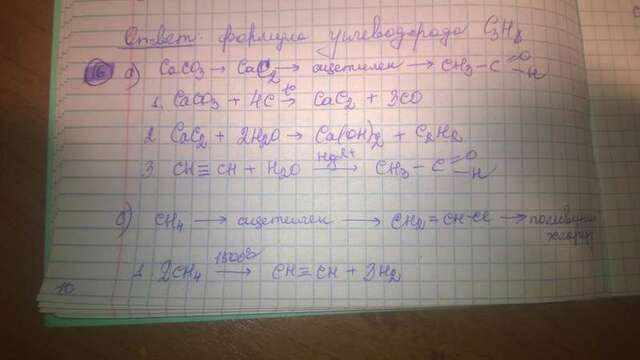 Ответ: формула углеводорода C3H8
16 а) CaCO3 → CaC2 → ацетилен → CH3-C=O-H
1. CaCO3 + 4C →t CaC2 + 3CO
2 CaC2 + 2H2O → Ca(OH)2 + C2H2
3 CH≡CH + H2O →Hg2+ CH3-C=O-H
б) CH4 → ацетилен → CH2=CH-Cl → поливинил
хлорид
1. 2CH4 →1500° CH≡CH + 3H2
10